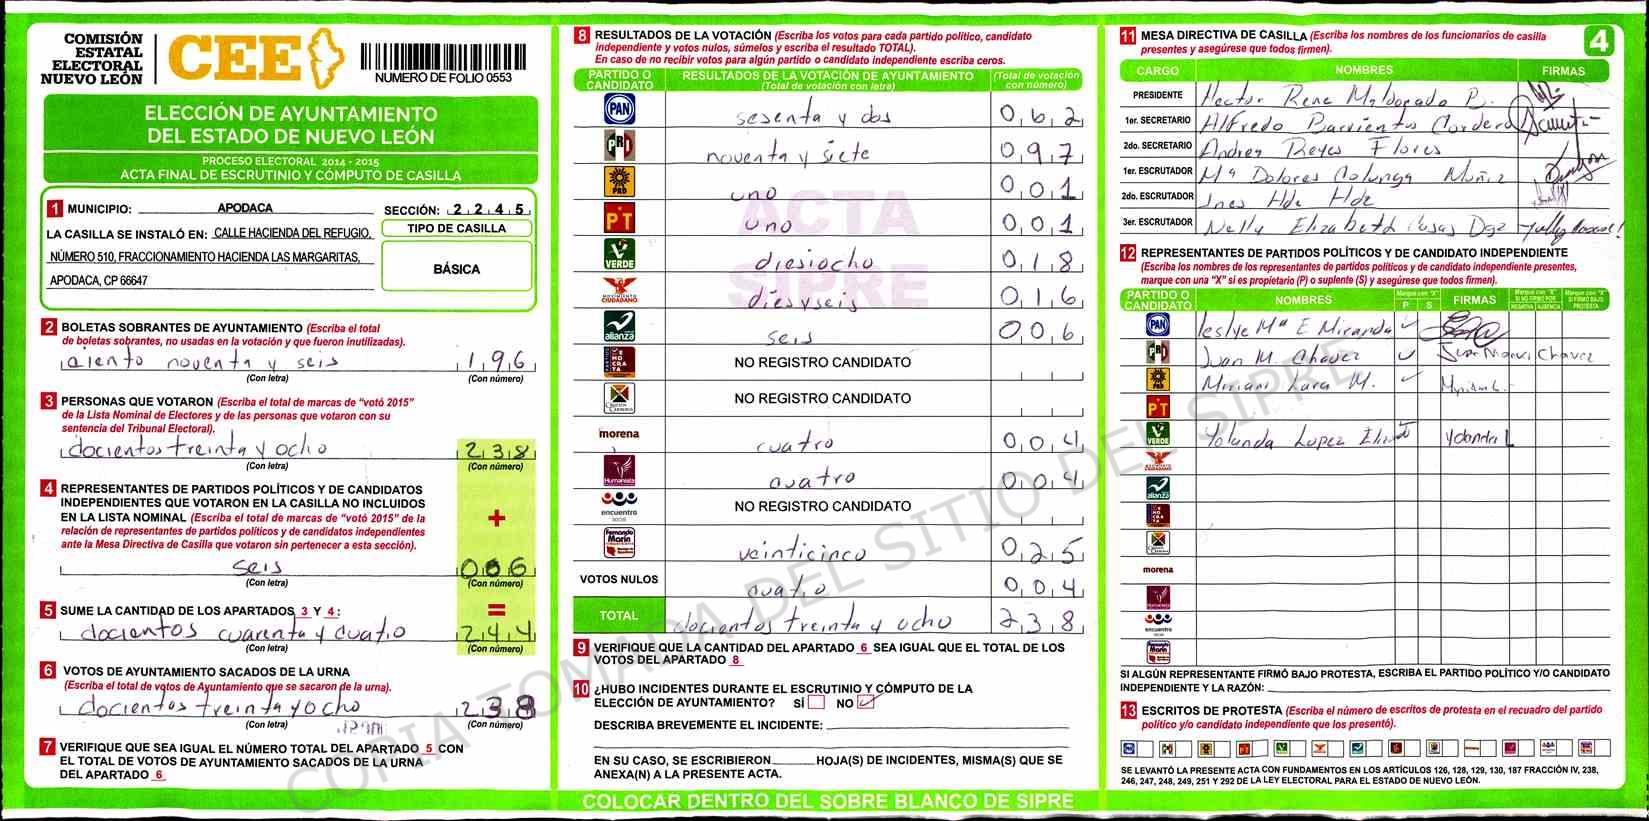 COMISIÓN
ESTATAL
ELECTORAL
NUEVO LEÓN
CEE
NUMERO DE FOLIO 0553
ELECCIÓN DE AYUNTAMIENTO
DEL ESTADO DE NUEVO LEÓN
PROCESO ELECTORAL 2014 - 2015
ACTA FINAL DE ESCRUTINIO Y CÓMPUTO DE CASILLA
1 MUNICIPIO: APODACA SECCIÓN: 2 2 4 5
LA CASILLA SE INSTALÓ EN: CALLE HACIENDA DEL REFUGIO,
NÚMERO 510, FRACCIONAMIENTO HACIENDA LAS MARGARITAS,
APODACA, CP 66647
TIPO DE CASILLA
BÁSICA
2 BOLETAS SOBRANTES DE AYUNTAMIENTO (Escriba el total
de boletas sobrantes, no usadas en la votación y que fueron inutilizadas).
ciento noventa y seis 1 9 6
(Con letra) (Con número)
3 PERSONAS QUE VOTARON (Escriba el total de marcas de “votó 2015”
de la Lista Nominal de Electores y de las personas que votaron con su
sentencia del Tribunal Electoral).
docientos treinta y ocho 2 3 8
(Con letra) (Con número)
4 REPRESENTANTES DE PARTIDOS POLÍTICOS Y DE CANDIDATOS
INDEPENDIENTES QUE VOTARON EN LA CASILLA NO INCLUIDOS
EN LA LISTA NOMINAL (Escriba el total de marcas de “votó 2015” de la
relación de representantes de partidos políticos y de candidatos independientes
ante la Mesa Directiva de Casilla que votaron sin pertenecer a esta sección).
+
seis 0 0 6
(Con letra) (Con número)
5 SUME LA CANTIDAD DE LOS APARTADOS 3 Y 4: =
docientos cuarenta y cuatro 2 4 4
(Con letra) (Con número)
6 VOTOS DE AYUNTAMIENTO SACADOS DE LA URNA
(Escriba el total de votos de Ayuntamiento que se sacaron de la urna).
docientos treinta y ocho 2 3 8
(Con letra) (Con número)
7 VERIFIQUE QUE SEA IGUAL EL NÚMERO TOTAL DEL APARTADO 5 CON
EL TOTAL DE VOTOS DE AYUNTAMIENTO SACADOS DE LA URNA
DEL APARTADO 6
8 RESULTADOS DE LA VOTACIÓN (Escriba los votos para cada partido político, candidato
independiente y votos nulos, súmelos y escriba el resultado TOTAL).
En caso de no recibir votos para algún partido o candidato independiente escriba ceros.
PARTIDO O CANDIDATO RESULTADOS DE LA VOTACIÓN DE AYUNTAMIENTO (Total de votación con letra) (Total de votación con número)
PAN sesenta y dos 0 6 2
PRD noventa y siete 0 9 7
PRD uno 0 0 1
PT uno 0 0 1
VERDE diesiocho 0 1 8
MOVIMIENTO CIUDADANO diesyseis 0 1 6
alianza seis 0 0 6
DEMOCRATA NO REGISTRO CANDIDATO
NO REGISTRO CANDIDATO
morena cuatro 0 0 4
Humanista cuatro 0 0 4
encuentro social NO REGISTRO CANDIDATO
Fernando Marín veinticinco 0 2 5
VOTOS NULOS cuatro 0 0 4
TOTAL docientos treinta y ocho 2 3 8
ACTA
SIPRE
9 VERIFIQUE QUE LA CANTIDAD DEL APARTADO 6 SEA IGUAL QUE EL TOTAL DE LOS
VOTOS DEL APARTADO 8
10 ¿HUBO INCIDENTES DURANTE EL ESCRUTINIO Y CÓMPUTO DE LA
ELECCIÓN DE AYUNTAMIENTO? SÍ NO
DESCRIBA BREVEMENTE EL INCIDENTE:
EN SU CASO, SE ESCRIBIERON HOJA(S) DE INCIDENTES, MISMA(S) QUE SE
ANEXA(N) A LA PRESENTE ACTA.
COLOCAR DENTRO DEL SOBRE BLANCO DE SIPRE
11 MESA DIRECTIVA DE CASILLA (Escriba los nombres de los funcionarios de casilla
presentes y asegúrese que todos firmen).
4
CARGO NOMBRES FIRMAS
PRESIDENTE Hector Rene Maldonado B.
1er. SECRETARIO Alfredo Barrientos Cordero
2do. SECRETARIO Andres Reyes Flores
1er. ESCRUTADOR Mª Dolores Colunga Muñiz
2do. ESCRUTADOR Ines Hdz Hdz
3er. ESCRUTADOR Nelly Elizabeth Casas Dgz
12 REPRESENTANTES DE PARTIDOS POLÍTICOS Y DE CANDIDATO INDEPENDIENTE
(Escriba los nombres de los representantes de partidos políticos y de candidato independiente presentes,
marque con una “X” si es propietario (P) o suplente (S) y asegúrese que todos firmen).
PARTIDO O CANDIDATO NOMBRES Marque con “X” P S FIRMAS Marque con “X” SI NO FIRMÓ POR NEGATIVA AUSENCIA Marque con “X” SI FIRMÓ BAJO PROTESTA
PAN Leslye Mª E Miranda
PRD Juan M. Chavez Juan Manuel Chavez
PRD Miriam Lara M. Myriam L.
PT
VERDE Yolanda Lopez Yolanda L
alianza
morena
encuentro
SI ALGÚN REPRESENTANTE FIRMÓ BAJO PROTESTA, ESCRIBA EL PARTIDO POLÍTICO Y/O CANDIDATO
INDEPENDIENTE Y LA RAZÓN:
13 ESCRITOS DE PROTESTA (Escriba el número de escritos de protesta en el recuadro del partido
político y/o candidato independiente que los presentó).
SE LEVANTÓ LA PRESENTE ACTA CON FUNDAMENTOS EN LOS ARTÍCULOS 126, 128, 129, 130, 187 FRACCIÓN IV, 238,
246, 247, 248, 249, 251 Y 292 DE LA LEY ELECTORAL PARA EL ESTADO DE NUEVO LEÓN.
COPIA TOMADA DEL SITIO DEL SIPRE